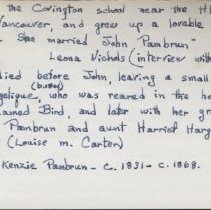 the Covington school near the H
Vancouver, and grew up a lovable
She married John Pambrun"
Leona Nichols (interview with
died before John, leaving a small
(b.1864)
gelique, who was reared in the ho
named Bird, and later with her gr
Pambrun and aunt Harriet Harg
(Louise M. Carter)
Kenzie Pambrun - c. 1831 - c. 1868.